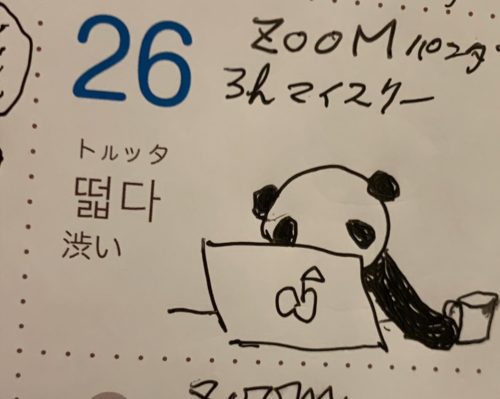 26
ZOOM
3h マイスター
トルッタ
떫다
渋い